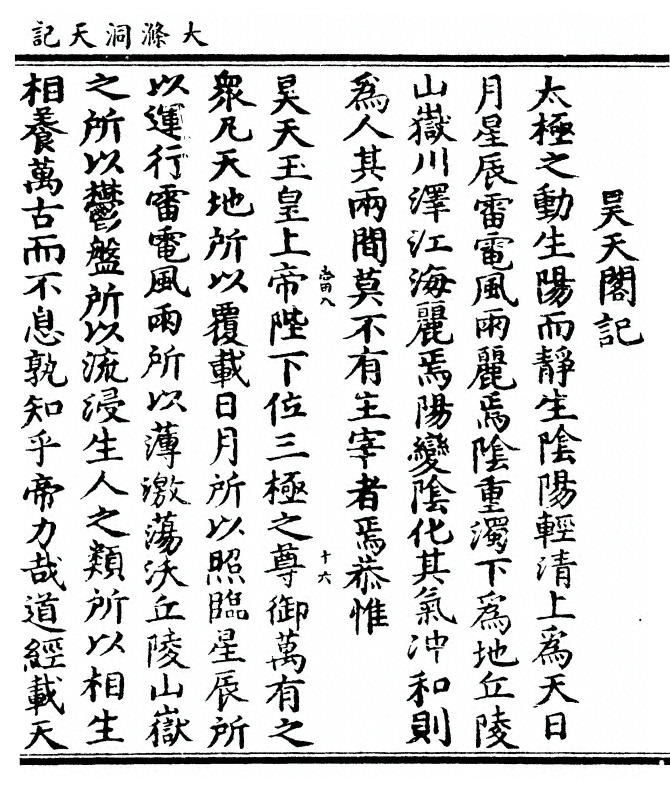 大滌洞天記
昊天閣記
太極之動生陽而靜生陰陽輕清上爲天日
月星辰雷電風雨麗焉陰重濁下爲地丘陵
山嶽川澤江海麗焉陽變陰化其氣冲和則
爲人其兩間莫不有主宰者焉恭惟
昊天玉皇上帝陛下位三極之尊御萬有之
衆凡天地所以覆載日月所以照臨星辰所
以運行雷電風雨所以薄激蕩沃丘陵山嶽
之所以鬱盤所以流浸生人之類所以相生
相養萬古而不息孰知乎帝力哉道經載天
十六